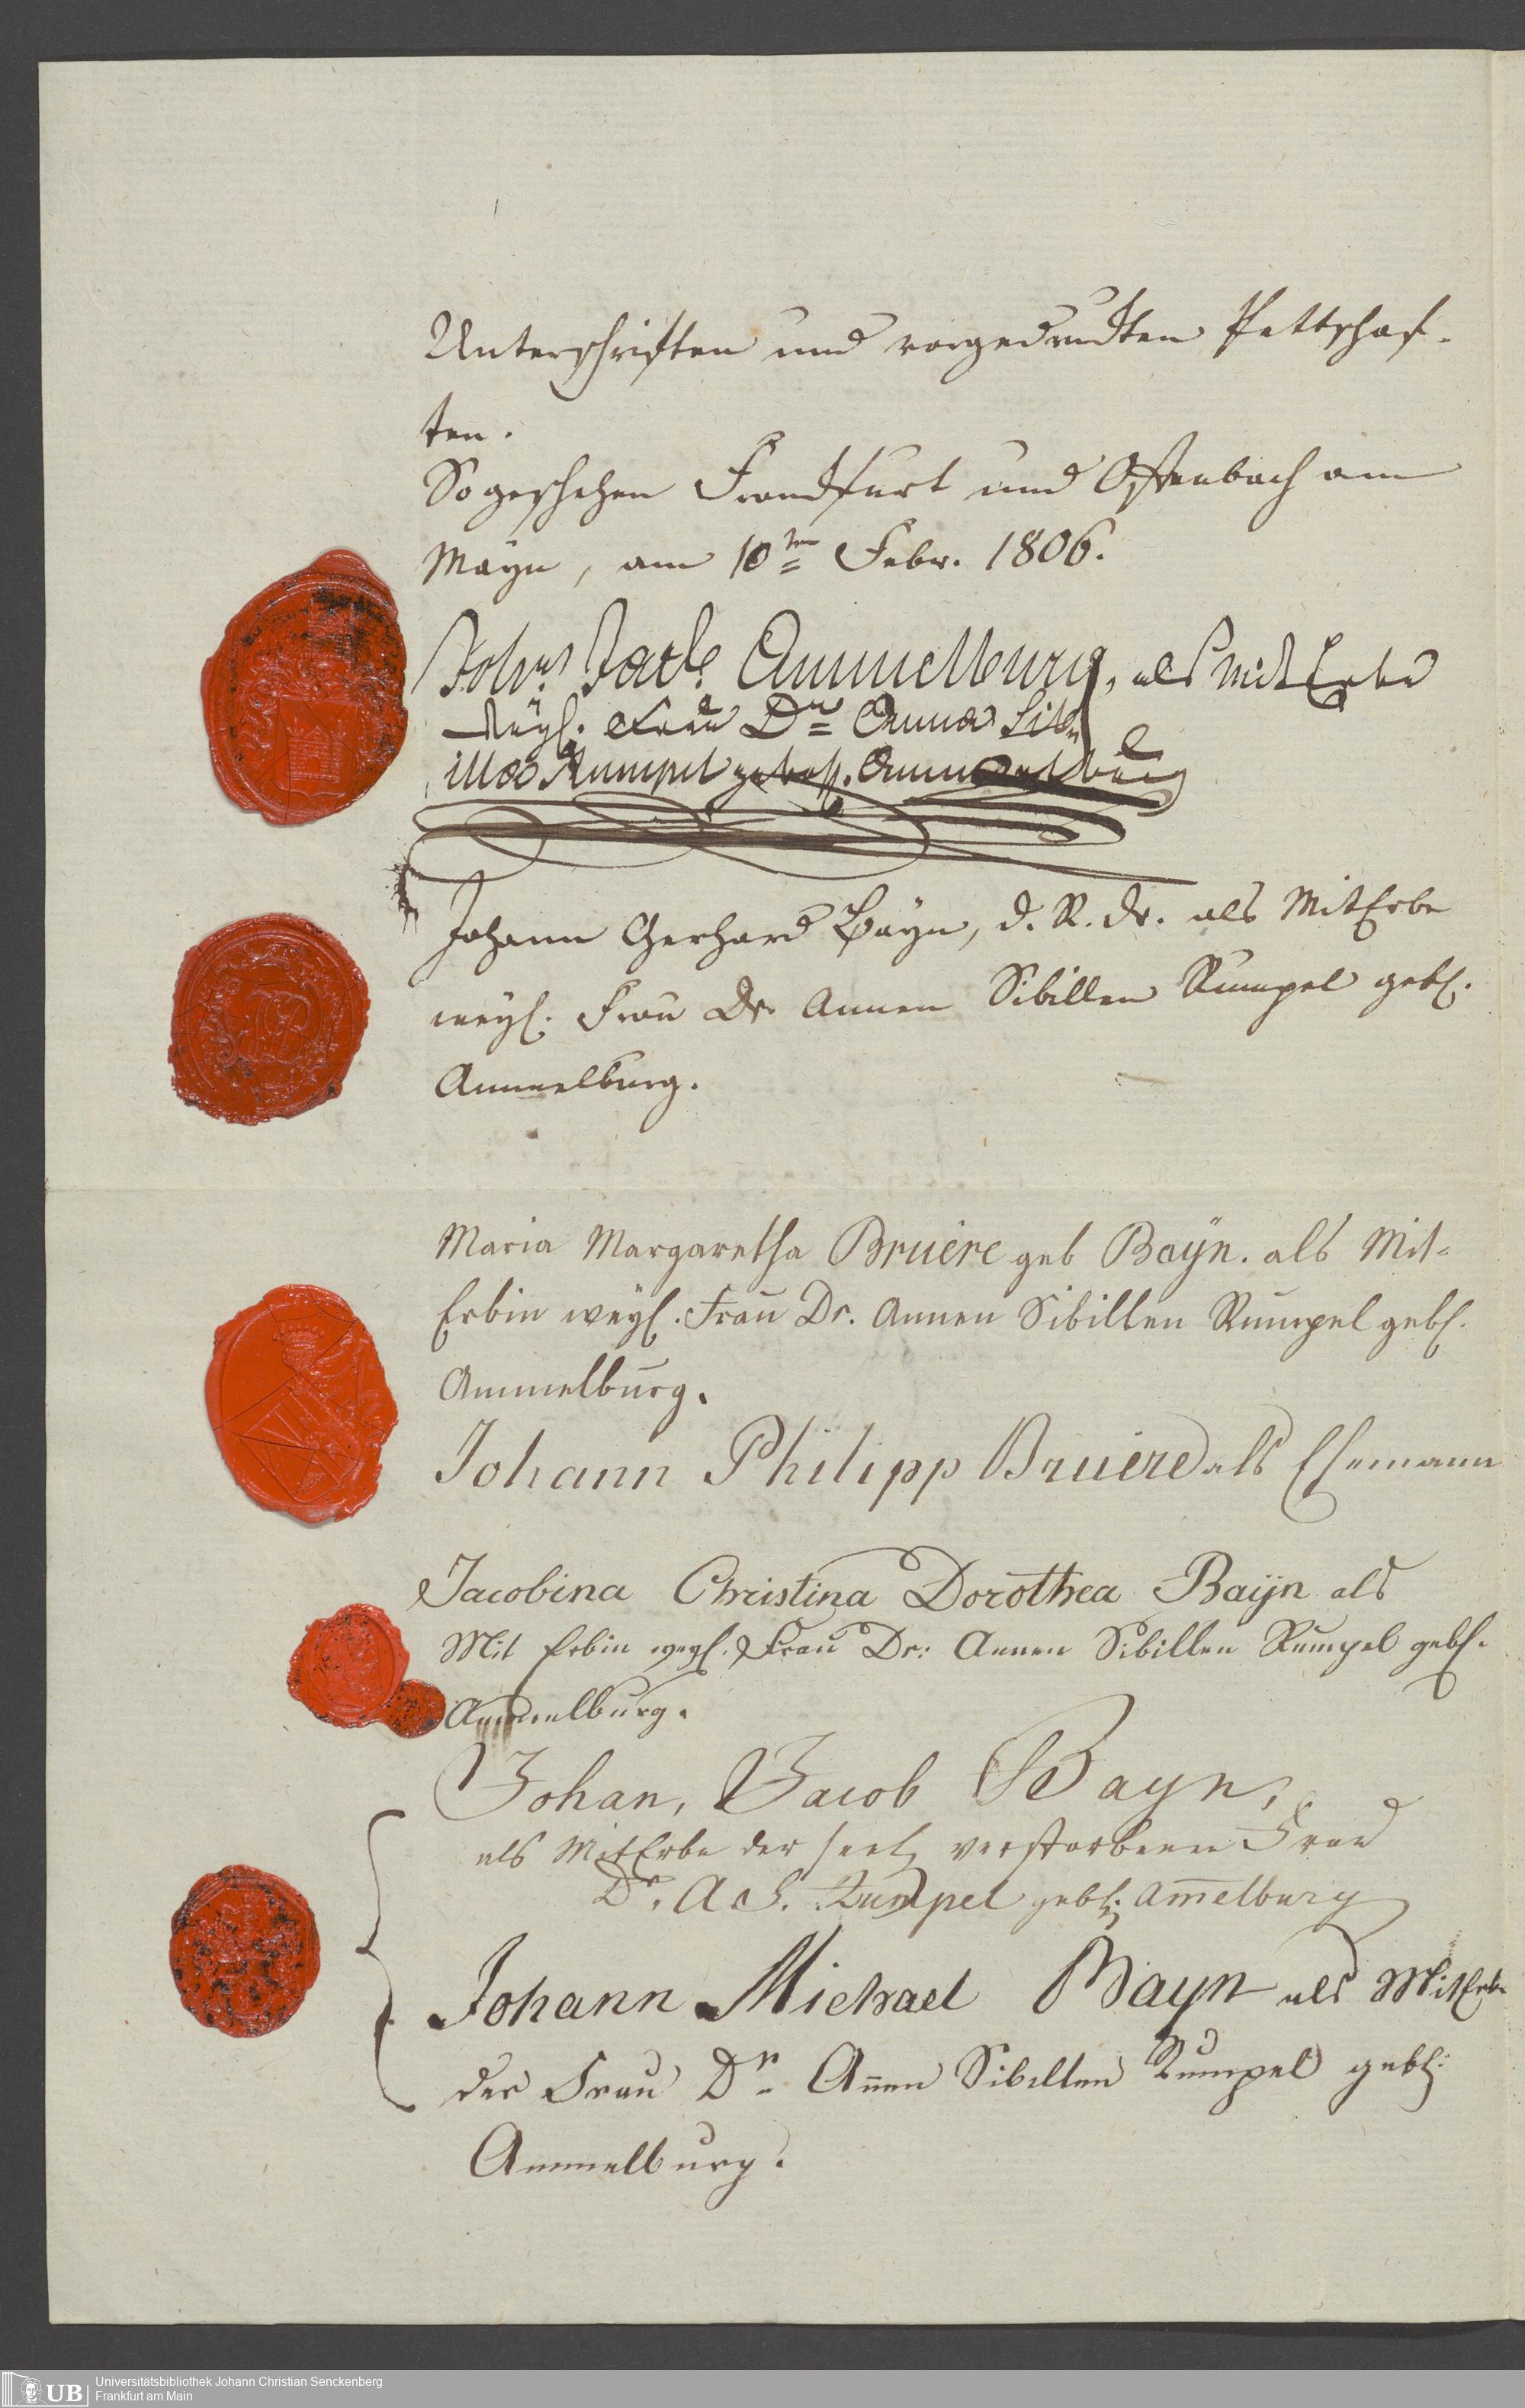 Unterschriften und vorgedruckten Pettschaf-
ten.
So geschehen Franckfurt und Offenbach am
Mayn, am 10ten Febr. 1806.
Johs. Jacb. Ammelburg, als MitErbe
weyl. Frau Dr. Anna Sib-
illa Rumpel gebohr. Ammelburg
Johann Gerhard Bayn, d. R. Dr. als MitErbe
weyl. Frau Dr. Annen Sibillen Rumpel gebh.
Ammelburg.
Maria Margaretha Bruère geb Bayn. als Mit-
Erbin weyl. Frau Dr. Annen Sibillen Rumpel gebh.
Ammelburg.
Johann Philipp Bruère als Ehemann
Jacobina Christina Dorothea Bayn als
Mit Erbin weyl. Frau Dr: Annen Sibillen Rumpel gebh.
Ammelburg.
Johan, Jacob Bayn,
als MitErbe der seel. verstorbenen Frau
Dr. A. S. Rumpel gebh. Am̄elburg
Johann Michael Bayn als MitErbe
der Frau Dr. An̄en Sibillen Rumpel gebh:
Ammelburg.
UB
Universitätsbibliothek Johann Christian Senckenberg
Frankfurt am Main